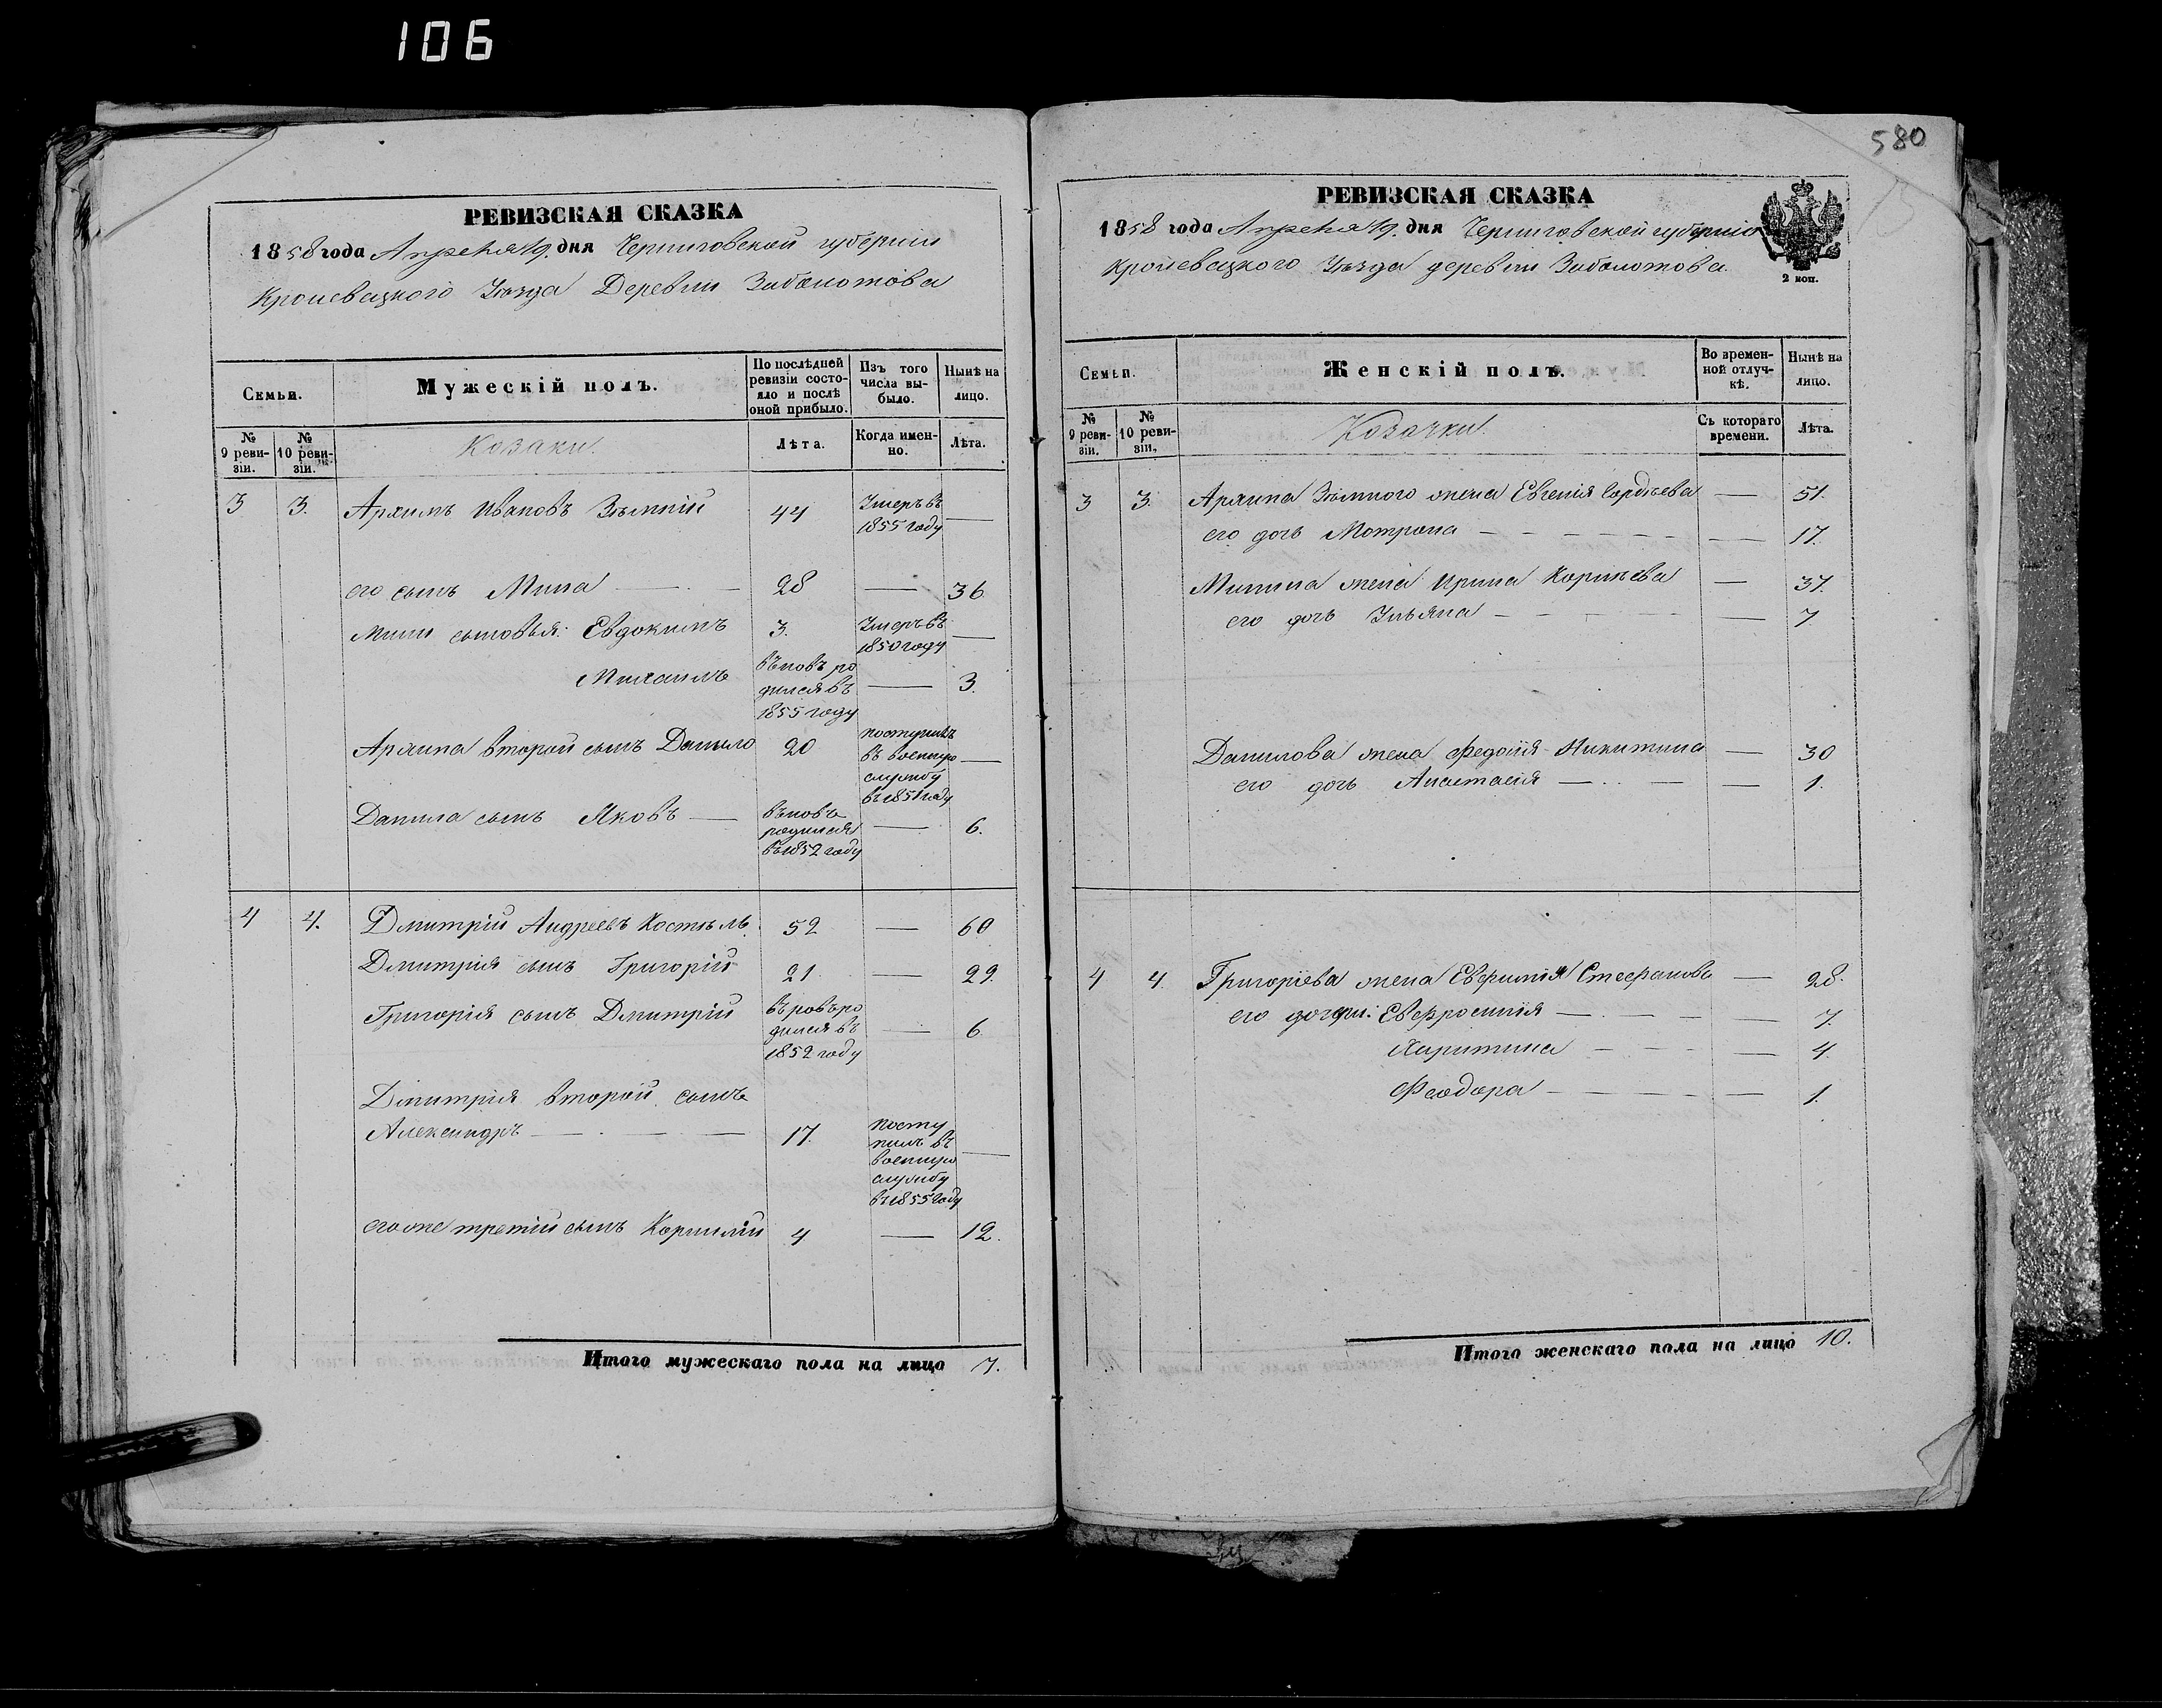 106
580
РЕВИЗСКАЯ СКАЗКА
1858 года Апреля 19. дня Черниговской губернии
Кролевецкого Уезда Деревни Заболотова
Семьи.
Мужескій полъ.
По послѣдней ревизіи состояло и послѣ оной прибыло.
Изъ того числа выбыло.
Нынѣ на лицо.
№ 9 ревизіи.
№ 10 ревизіи.
Козаки.
Лѣта.
Когда именно.
Лѣта.
3 3. Архипъ Ивановъ 44 Умеръ въ 1855 году —
его сынъ Мина — 28 — 36
Мины сыновья: Евдокимъ 3. Умеръ въ 1850 году —
Михаилъ вновь родился въ 1855 году — 3.
Архипа второй сынъ Данило 20 поступилъ въ военную службу въ 1851 году —
Данила сынъ Яковъ — вновь родился въ 1852 году — 6.
4 4. Дмитрій Андреевъ 52 — 60
Дмитрія сынъ Григорій 21. — 29.
Григорія сынъ Дмитрій вновь родился въ 1852 году — 6
Дмитрія второй сынъ
Александръ — 17. поступилъ въ военную службу въ 1855 году —
его же третій сынъ Корнилій 4 — 12.
Итого мужескаго пола на лицо 7.
РЕВИЗСКАЯ СКАЗКА
1858 года Апреля 19. дня Черниговской губерніи
Кролевецкого Уезда деревни Заболотова.
2 коп.
Семьи.
Женскій полъ.
Во временной отлучкѣ.
Нынѣ на лицо.
№ 9 ревизіи.
№ 10 ревизіи.
Козачки.
Съ котораго времени.
Лѣта.
3 3. Архипа жена Евгенія Гордѣева — 51.
его дочь Мотрона — — 17.
Минина жена Ирина Корнѣева — 37.
его дочь Ульяна — — 7
Данилова жена Федосія Никитина — 30
его дочь Анастасія — — 1.
4 4. Григоріева жена Евфимія Стефанова — 28.
его дочери: Евфросинія — — 7.
Харитина — — 4.
Феодора — — 1.
Итого женскаго пола на лицо 10.